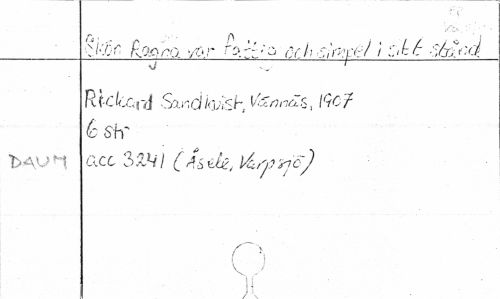 Skön Ragna var fattig och simpel i sitt stånd
Rickard Sandkvist, Vännäs, 1907
6 str
DAUM acc 3241 (Åsele, Varpsjö)